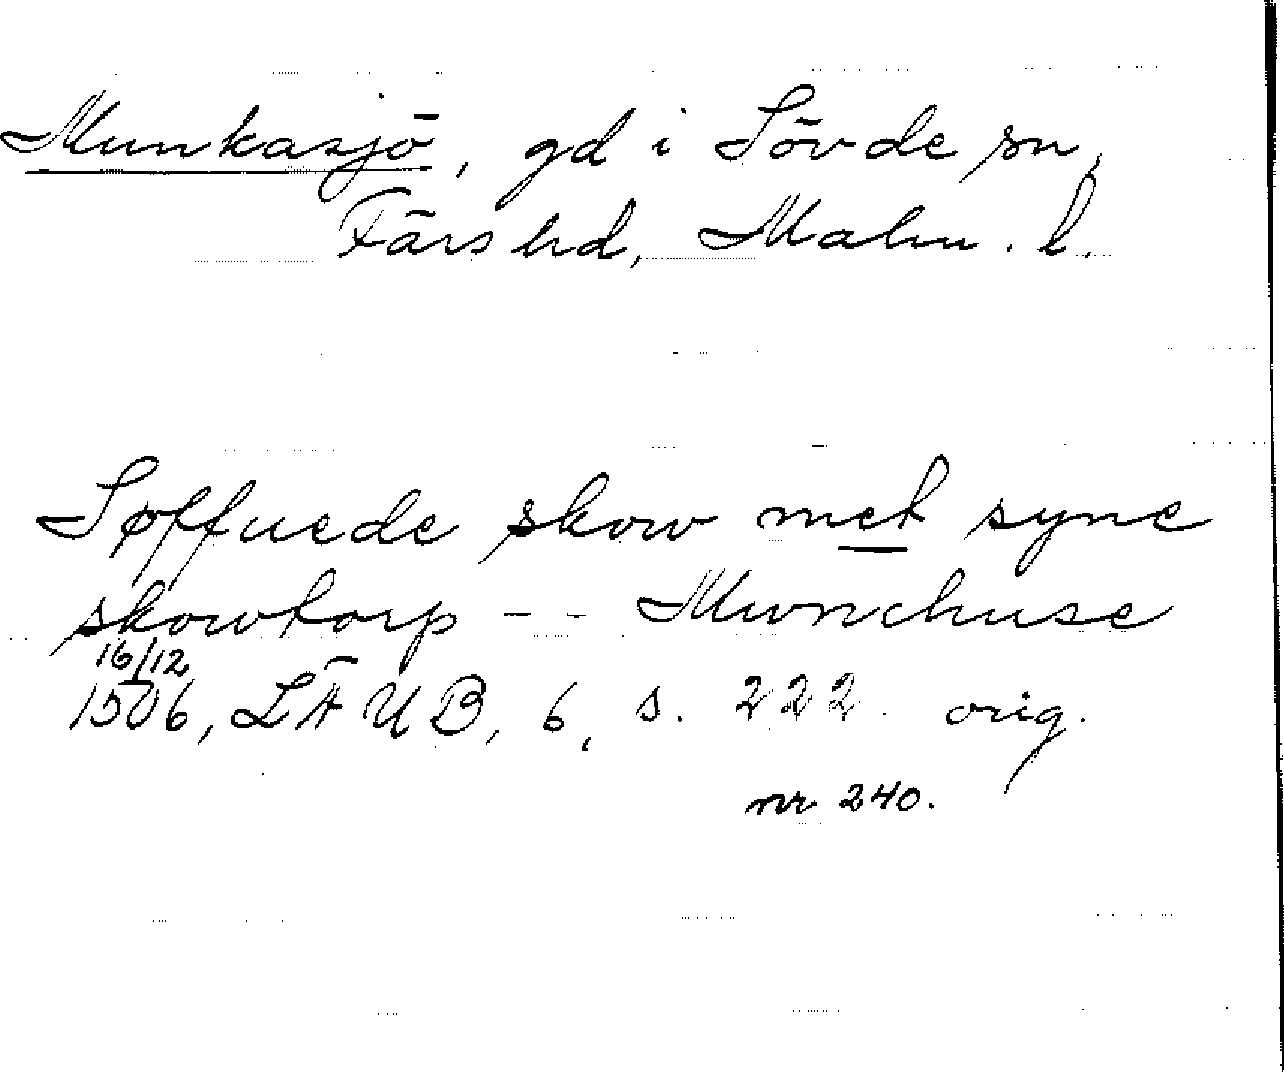 Munkasjö, gd i Sövde sn,
Färs hd, Malm. l.
Søffuede skow met syne
skowtorp - - Mwnchuse
16/12
1506, LÄUB, 6, s. 222. orig.
nr 240.